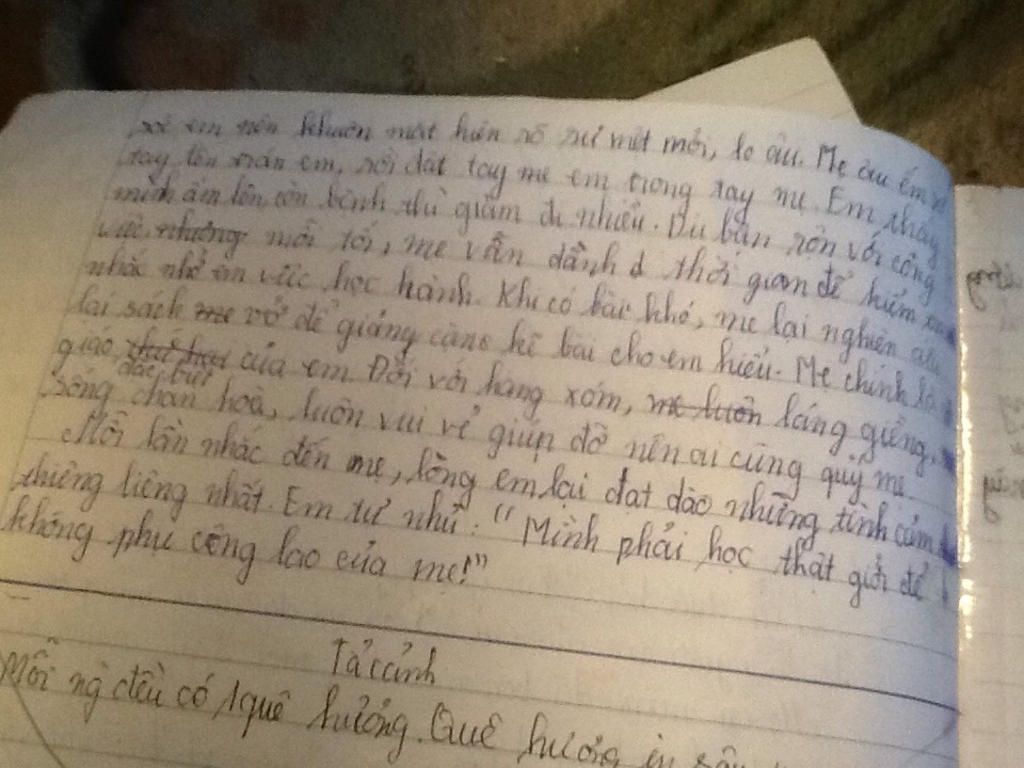 sợ em nên khuôn mặt hiện rõ sự mệt mỏi, lo âu. Mẹ âu yếm
tay lên trán em, rồi đặt tay mẹ em trong tay mẹ. Em thấy
mình ấm lên, cơn bệnh như giảm đi nhiều. Dù bận rộn với công
việc nhưng mỗi tối, mẹ vẫn dành thời gian để kiểm
nhắc nhở em việc học hành. Khi có bài khó, mẹ lại nghiên cứu
lại sách vở để giảng cặng kẽ bài cho em hiểu. Mẹ chính là
giáo của em. Đối với hàng xóm, láng giềng,
sống chan hoà, luôn vui vẻ giúp đỡ nên ai cũng quý mẹ.
Mỗi lần nhắc đến mẹ, lòng em lại đạt dào những tình cảm
thiêng liêng nhất. Em tự nhủ: "Mình phải học thật giỏi để
không phụ công lao của mẹ!"
Tả cảnh
Mỗi ng đều có 1 quê hương. Quê hương